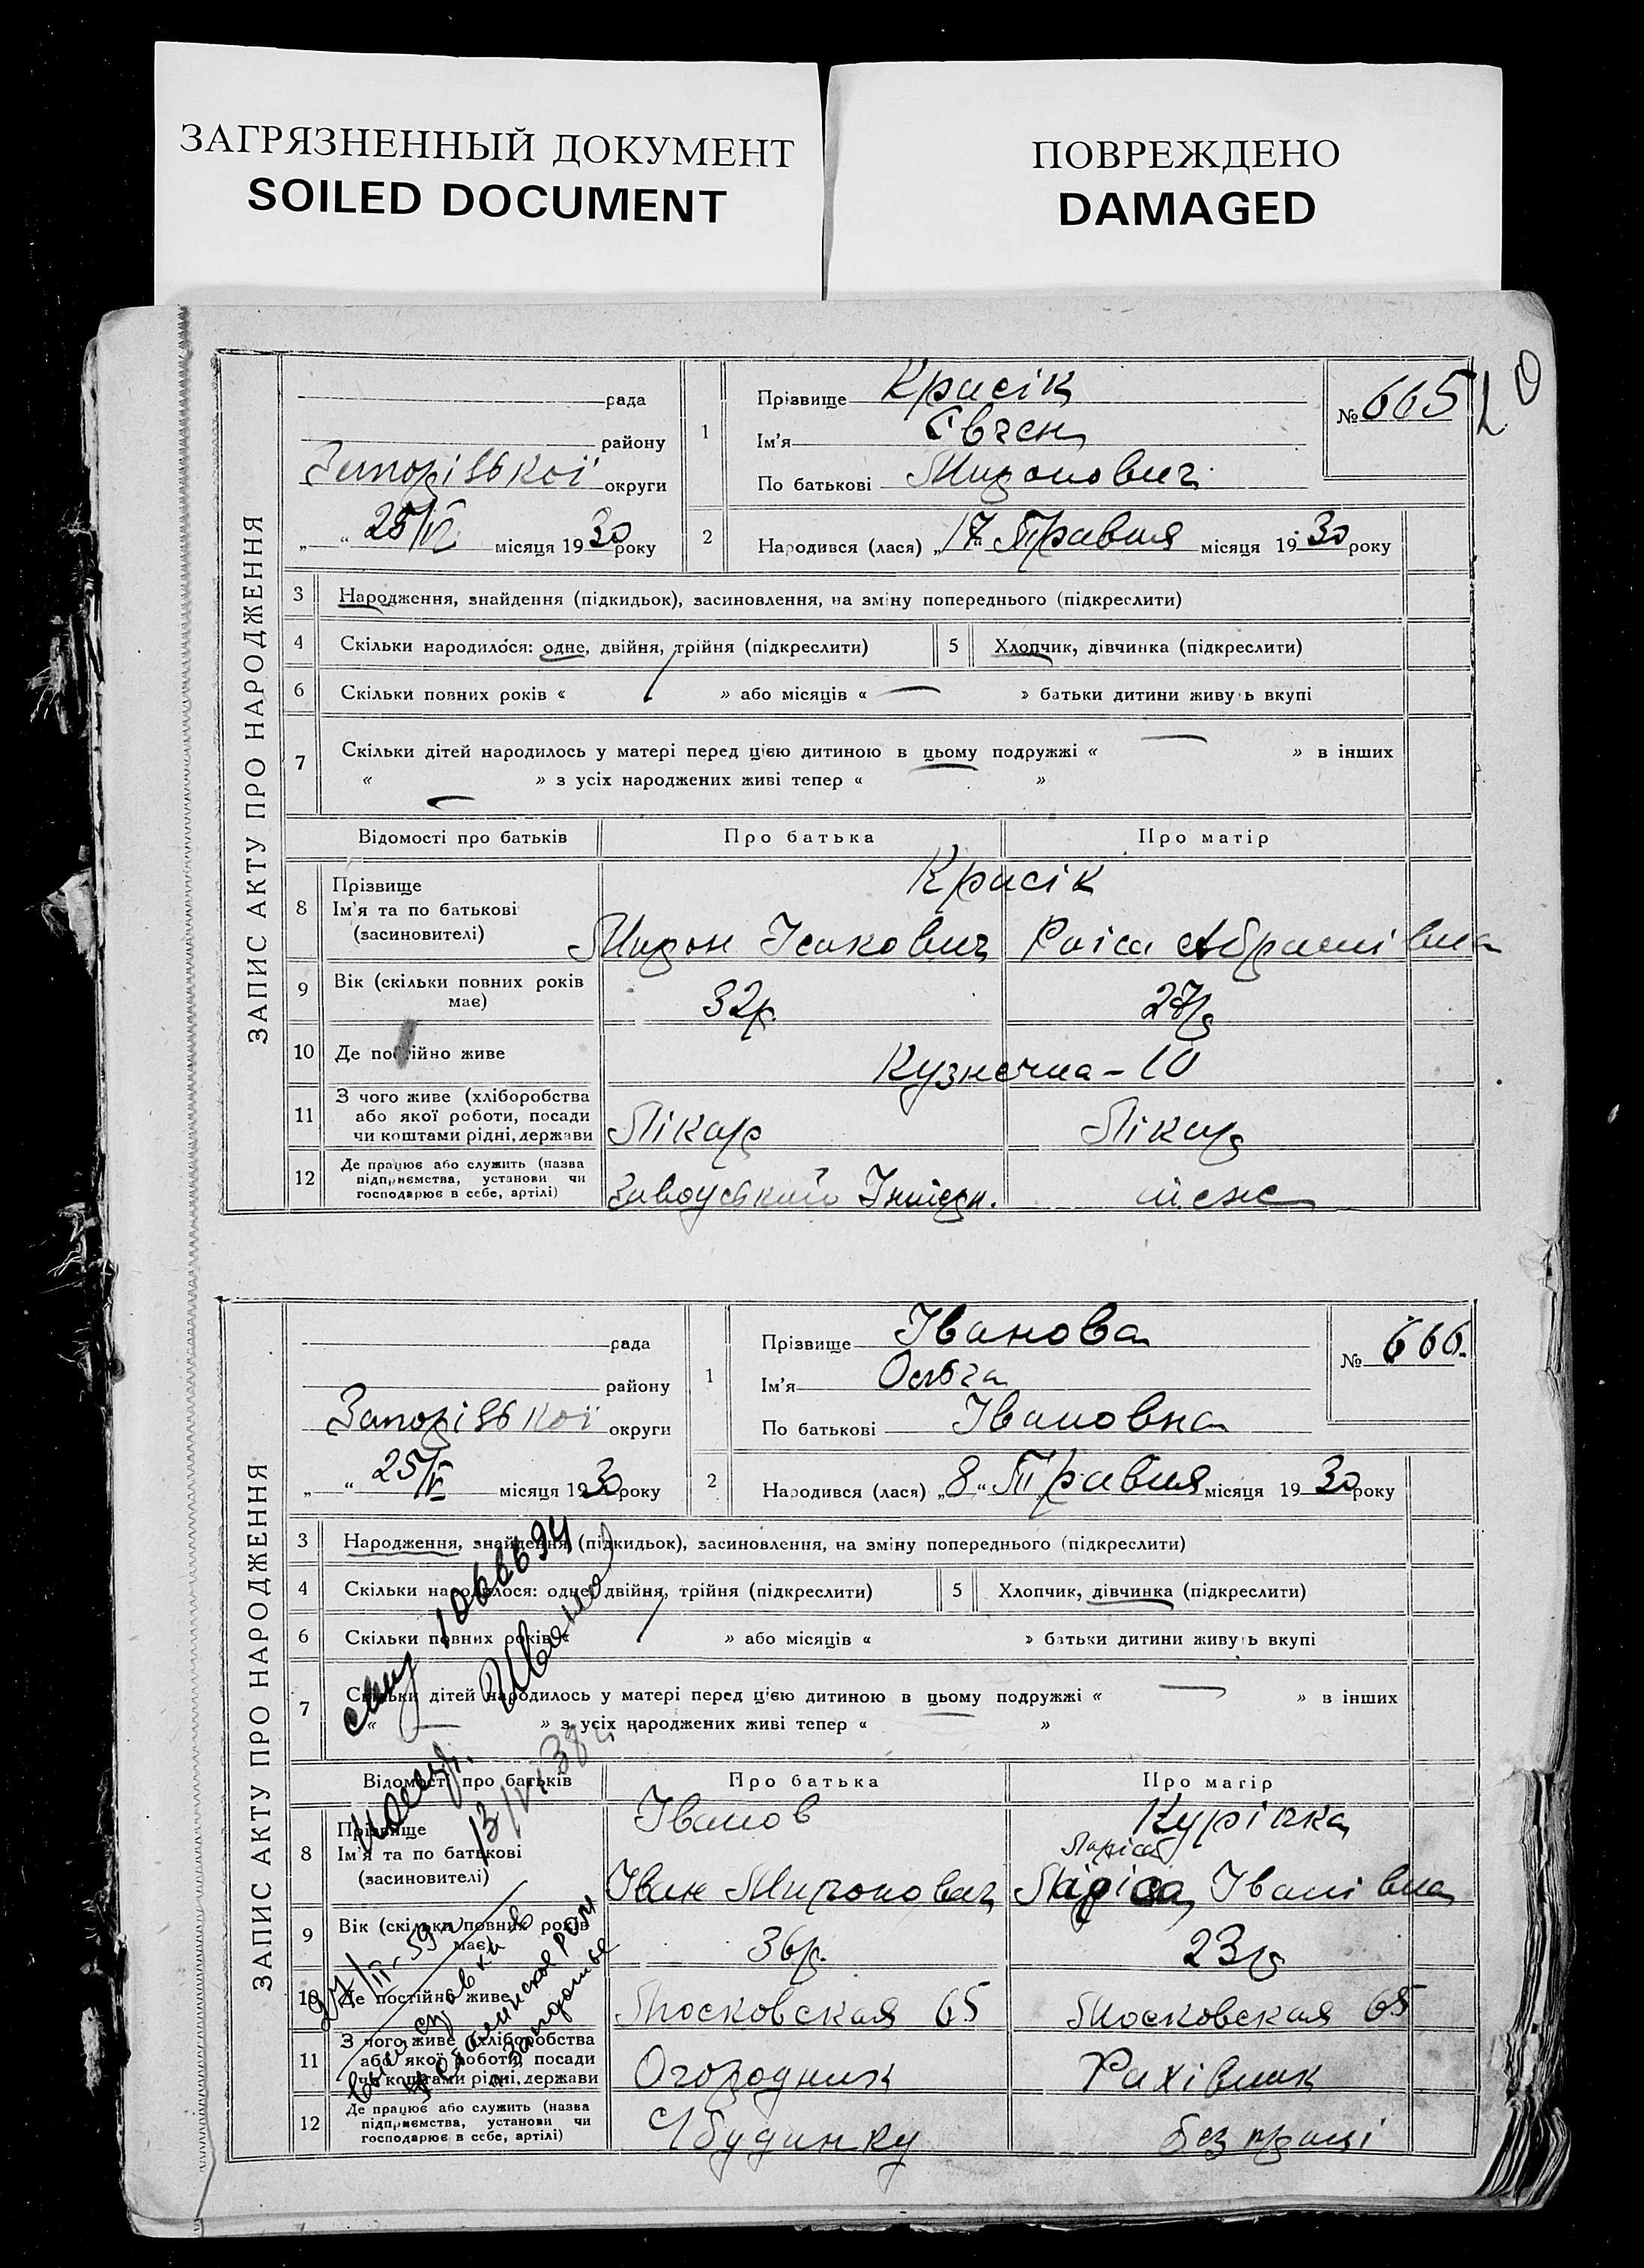 ЗАГРЯЗНЕННЫЙ ДОКУМЕНТ
SOILED DOCUMENT
ПОВРЕЖДЕНО
DAMAGED
ЗАПИС АКТУ ПРО НАРОДЖЕННЯ
рада
району
Запорізької округи
„ “ 25/V місяця 1930 року
1
Прізвище Красік
Ім'я Євген
По батькові Миронович
№ 665
20
2 Народився (лася) „17“ Травня місяця 1930 року
3 Народження, знайдення (підкидьок), засиновлення, на зміну попереднього (підкреслити)
4 Скільки народилося: одне, двійня, трійня (підкреслити)
5 Хлопчик, дівчинка (підкреслити)
6 Скільки повних років « 1 » або місяців « — » батьки дитини живуть вкупі
7 Скільки дітей народилось у матері перед цією дитиною в цьому подружжі « — » в інших
« — » з усіх народжених живі тепер « »
Відомості про батьків Про батька Про матір
8 Прізвище
Ім'я та по батькові
(засиновителі)
Красік
Мирон Ісакович Раіса Абрамівна
9 Вік (скільки повних років має) 32р. 27р
10 Де постійно живе Кузнечна - 10
11 З чого живе (хліборобства
або якої роботи, посади
чи коштами рідні, держави
Лікар Лікар
12 Де працює або служить (назва
підприємства, установи чи
господарює в себе, артілі)
теж
ЗАПИС АКТУ ПРО НАРОДЖЕННЯ
рада
району
Запорізької округи
„ “ 25/V місяця 1930 року
1
Прізвище Іванова
Ім'я Ольга
По батькові Івановна
№ 666.
2 Народився (лася) „8“ Травня місяця 1930 року
3 Народження, знайдення (підкидьок), засиновлення, на зміну попереднього (підкреслити)
4 Скільки народилося: одне, двійня, трійня (підкреслити)
5 Хлопчик, дівчинка (підкреслити)
6 Скільки повних років « 1 » або місяців « » батьки дитини живуть вкупі
7 Скільки дітей народилось у матері перед цією дитиною в цьому подружжі « — » в інших
« — » з усіх народжених живі тепер « »
Відомості про батьків Про батька Про матір
8 Прізвище
Ім'я та по батькові
(засиновителі)
Іванов Курінка
Ларіса
Іван Миронович Ларіса Іванівна
9 Вік (скільки повних років має) 36р. 23р
10 Де постійно живе Московская 65 Московская 65
11 З чого живе (хліборобства
або якої роботи, посади
чи коштами рідні, держави
Огородник Рахівник
12 Де працює або служить (назва
підприємства, установи чи
господарює в себе, артілі)
без праці